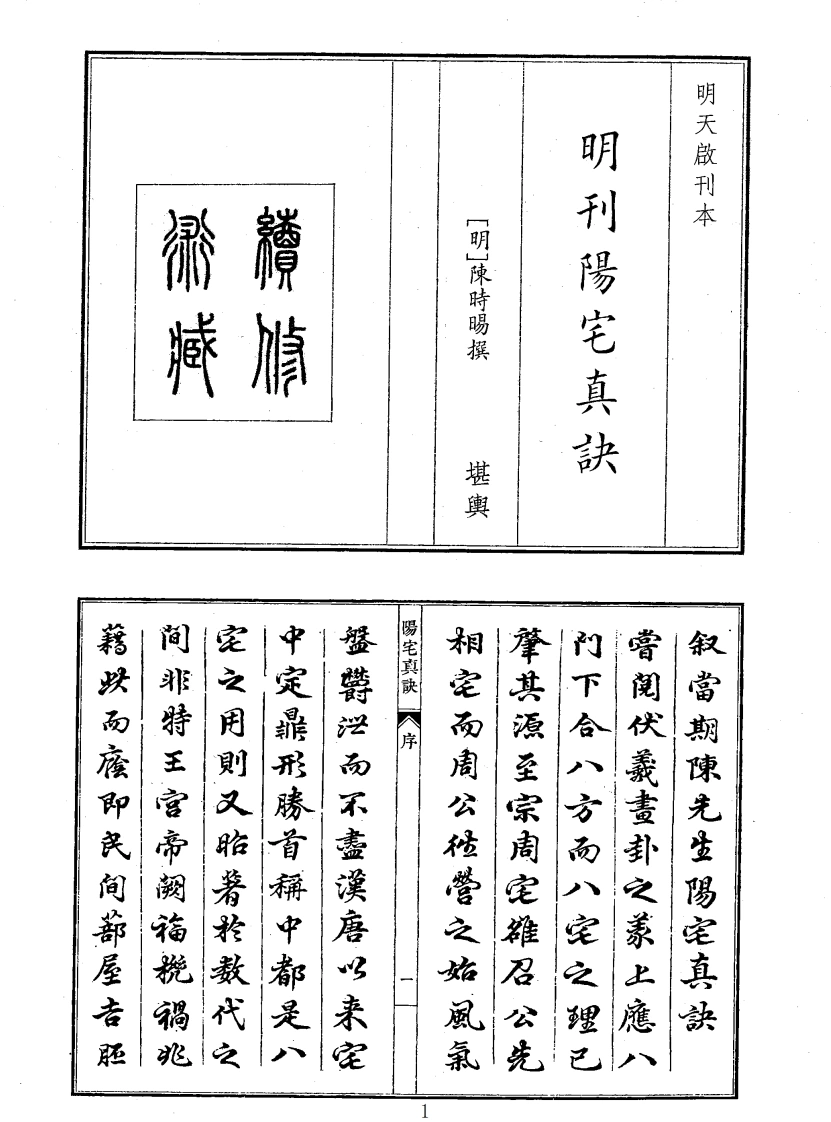 明天啟刊本
明刊陽宅真訣
[明]陳時暘撰　堪輿
續修
術藏
叙當期陳先生陽宅真訣
嘗閱伏羲畫卦之羕上應八
門下合八方而八宅之理已
肇其源至宗周宅雒召公先
相宅而周公徃營之始風氣
陽宅真訣
序
一
盤欝泄而不盡漢唐以来宅
中定鼎形勝首稱中都是八
宅之用則又昭著於数代之
間非特王宫帝闕福旤禍兆
藉此而瘥即民间蔀屋吉
1